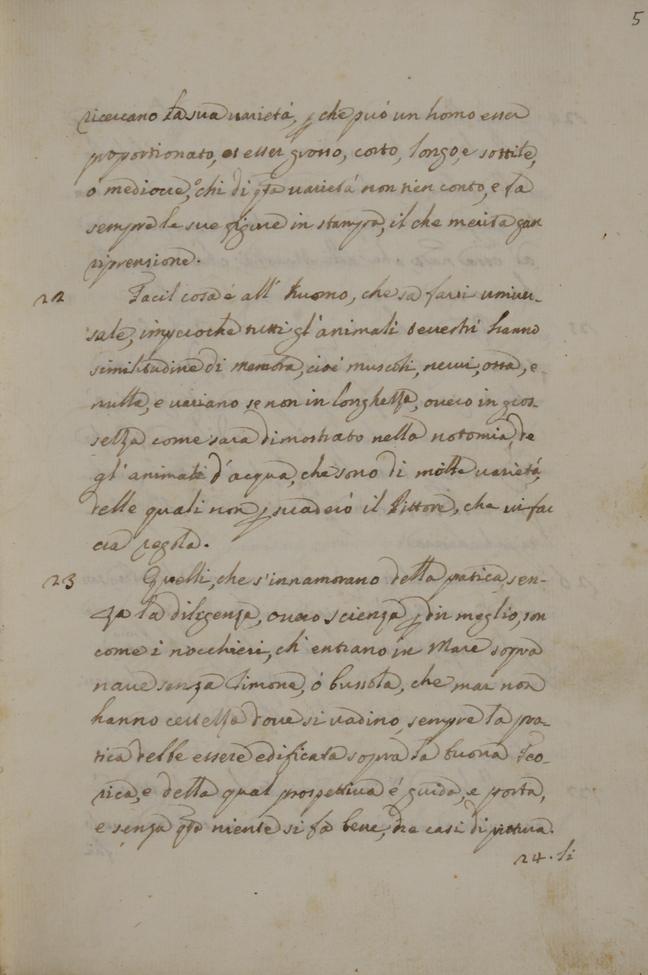 5
ricercano la sua varietà, p che può un homo esser
proportionato, et esser grosso, corto, longo, e sottile,
o mediocre, chi di qta varietà non tien conto, e fa
sempre le sue figure in stampa, il che merita gran
riprensione.
22 Facil cosa è all' huomo, che sa farsi univer-
sale, impcioche tutti gl'animali terrestri hanno
similitudine di membra, cioè muscoli, nervi, ossa, e
nulla, e variano se non in longhezza, overo in gros
sezza come sarà dimostrato nella notomia, de
gl'animali d'acqua, che sono di molte varietà,
delle quali non psuaderò il Pittore, che vi fac
cia regola.
23 Quelli, che s'innamorano della pratica, sen-
za la diligenza, overo scienza p dir meglio, son
come i nocchieri, ch'entrano in Mare sopra
nave senza timone, ò bussola, che mai non
hanno certezza dove si vadino, sempre la pra-
tica debbe essere edificata sopra la buona Teo-
rica, e della qual prospettiva è guida, e porta,
e senza qta niente si fa bene, ne casi di pittura.
24. Li